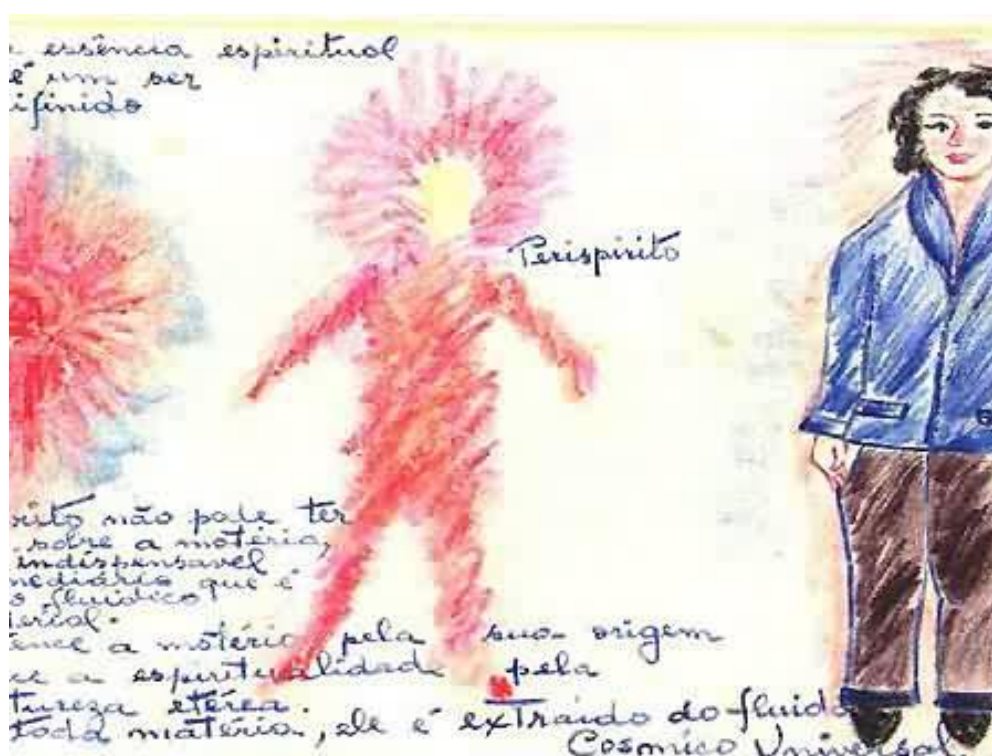 essência espiritual
é um ser
ifinido
Perispirito
rito não pode ter
sobre a matéria,
indispensavel
mediário que é
o fluidico
terial.
ence a matéria pela sua origem
ce a espiritualidade pela
tureza etérea.
toda matéria, ele é extraído do fluido
Cosmico Universal